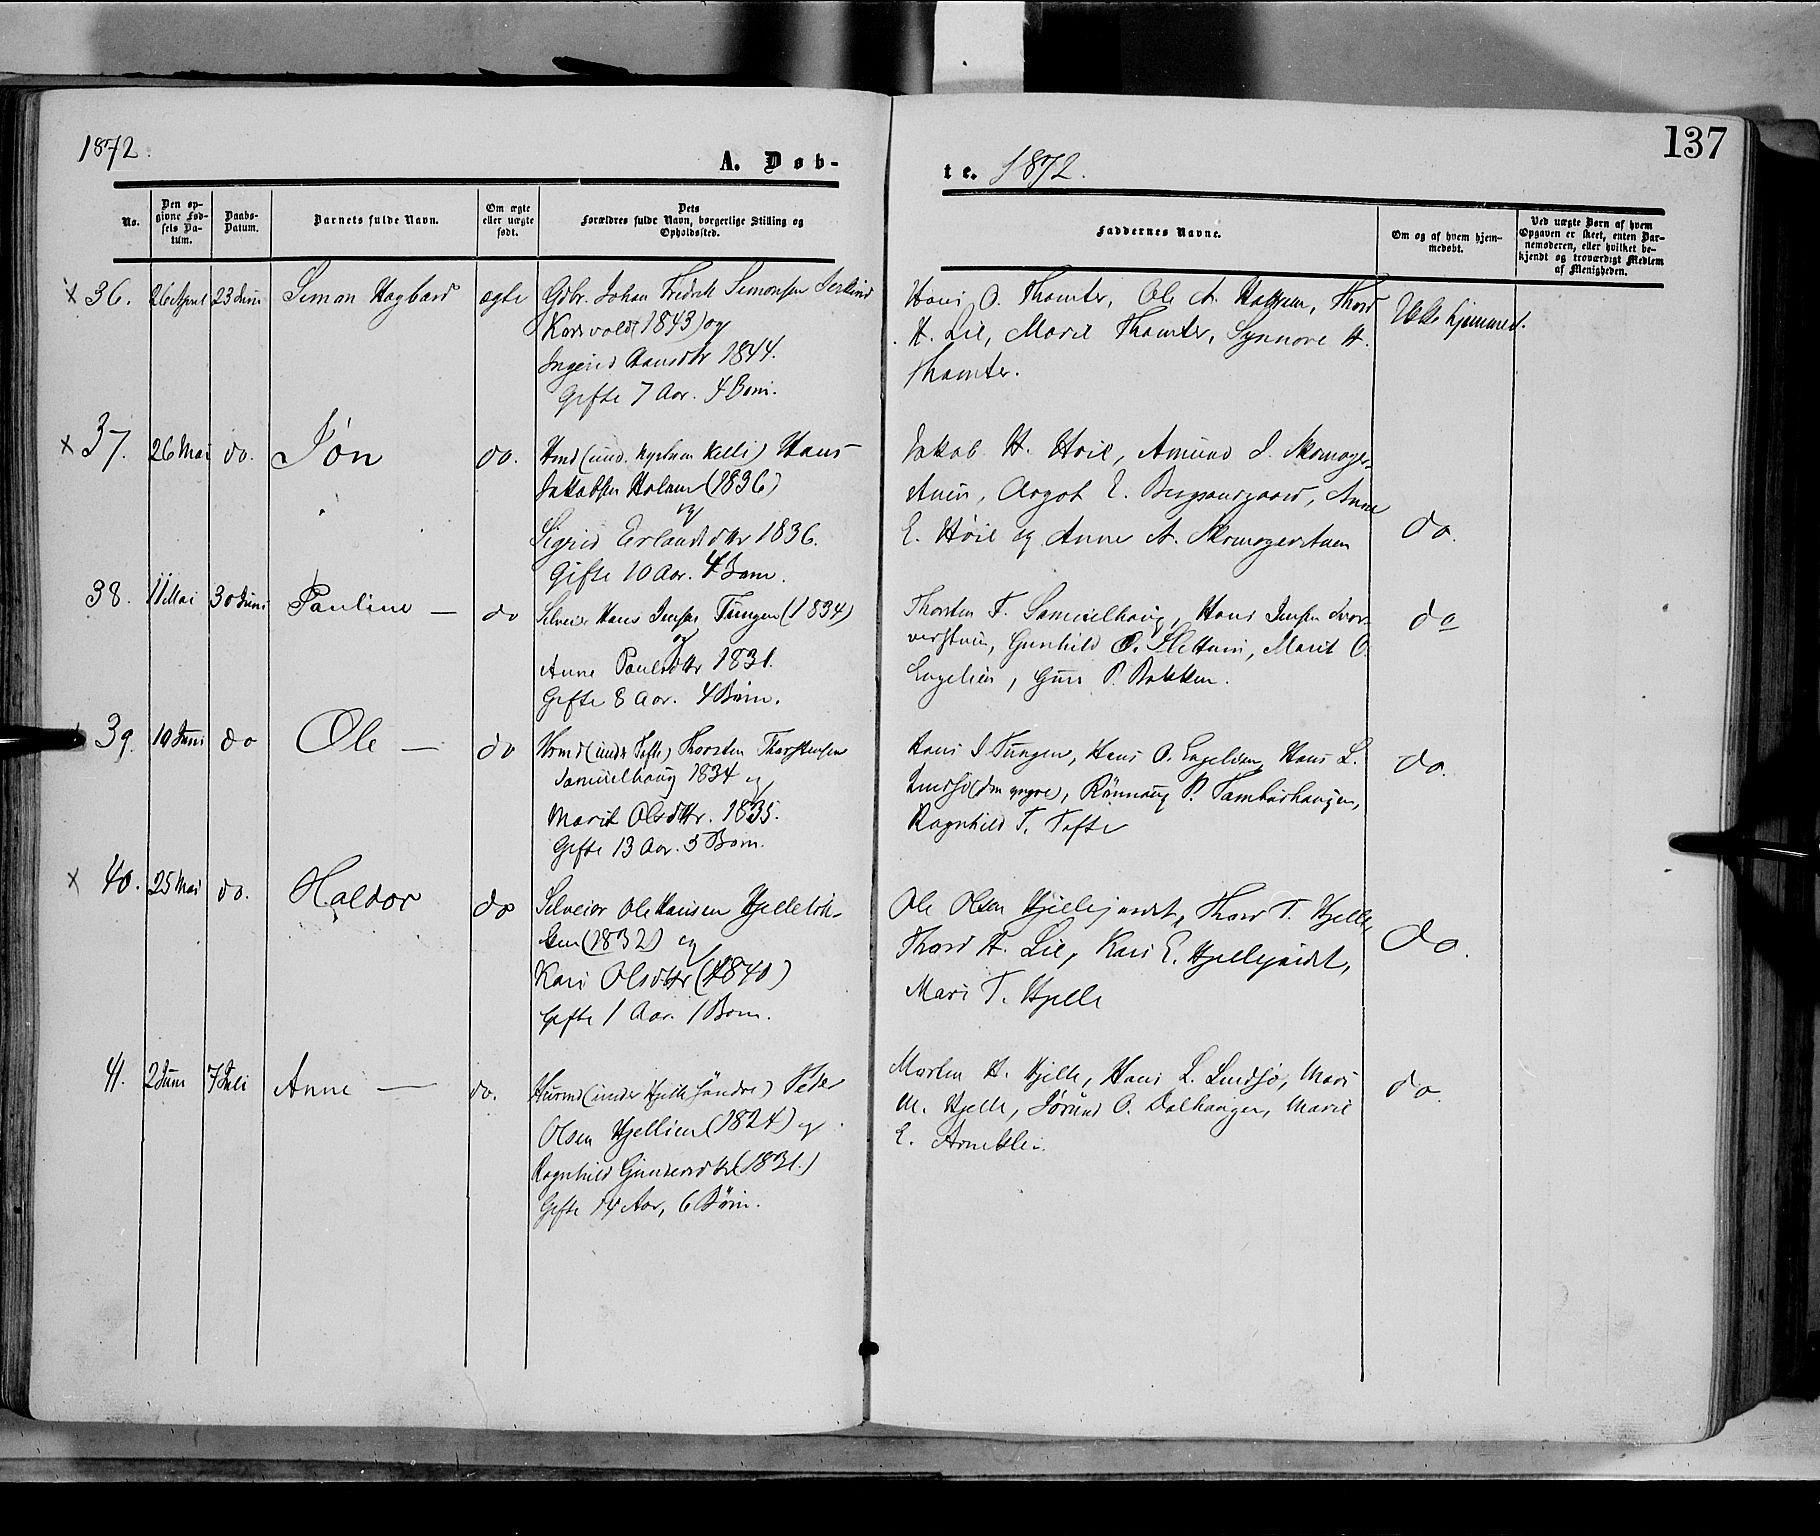 1872.
A. Døb-
te. 1872.
137
No.
Den op-
givne Fød-
sels Da-
tum.
Daabs-
Datum.
Barnets fulde Navn.
Om ægte
eller uægte
født.
Dets
Forældres fulde Navn, borgerlige Stilling og
Opholdssted.
Faddernes Navne.
Om og af hvem hjem-
medøbt.
Ved uægte Børn af hvem
Opgaven er skeet, enten Bar-
nemoderen, eller hvilket be-
kjendt og troværdigt Medlem
af Menigheden.
x 36. 26 April 23 Juni Simon Hagbard ægte Gdbr. Johan Fredrik Simonsen
Korsvold (1843) og
Ingerid Hansdtr 1844.
Gifte 7 Aar. 4 Børn.
Hans O. Thomter, Ole A. Thord
H. Lie, Marit Thomter, Synnøve H.
Thomter.
Ikke hjemmed.
x 37. 26 Mai do. Jøn do. Hmd (und. Kjelle) Hans
Jakobsen Holann (1836)
og
Sigrid Erlandsdtr 1836.
Gifte 10 Aar. 4 Børn.
Jakob H. Høie, Amund J. Skomager-
stuen, Aagot E. Anne
E. Høie og Anne A. Skomagerstuen
do.
38. 11 Mai 30 Juni Pauline — do Selveier Hans Jensen Tungen (1834)
og
Anne Paulsdtr 1831.
Gifte 8 Aar. 4 Børn.
Thorsten T. Samuelhaug, Hans Jensen
Gunhild O. Slettum, Marit O.
Engelien, Guri P. Bakken.
do
39. 10 Juni do Ole — do Hmd (under Tofte) Thorsten Thorstensen
Samuelhaug 1834 og
Marit Olsdtr. 1835.
Gifte 13 Aar. 5 Børn.
Hans J Tungen, Hans O. Engelien, Hans L.
Lindsø (den yngre), Rønnaug P. Tamburhaugen,
Ragnhild T. Tofte
do.
x 40. 25 Mai do. Haldor do Selveier Ole Hansen Hjellelök-
ken (1832) og
Kari Olsdtr (1840)
Gifte 1 Aar. 1 Barn.
Ole Olsen Hjellejordet, Thor T. Hjelle,
Thord H. Lie, Kari E. Hjellejordet,
Mari T. Hjelle
do.
41. 2 Juni 7 Juli Anne — do. Huusmd (under Hjelle søndre) Peder
Olsen Hjellien (1824) og
Ragnhild Gundersdtr (1831.)
Gifte 14 Aar, 6 Børn.
Morten H. Hjelle, Hans L. Lindsø, Mari
M. Hjelle, Jørund O. Dalhaugen, Marie
E.
do.